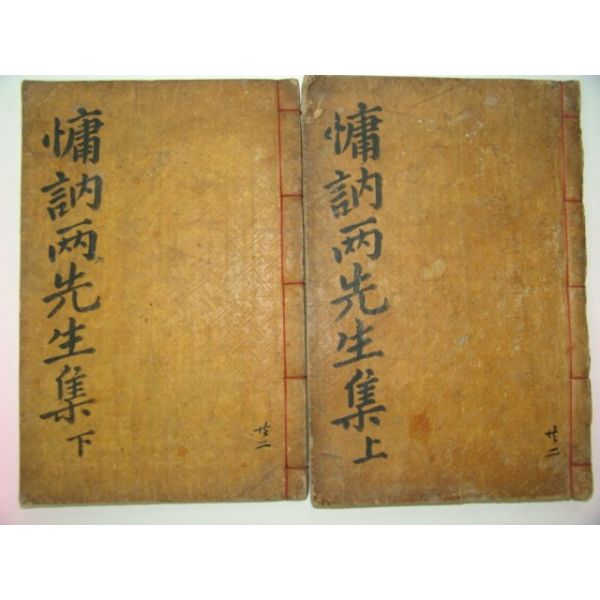 慵訥兩先生集 上
共二
慵訥兩先生集 下
共二